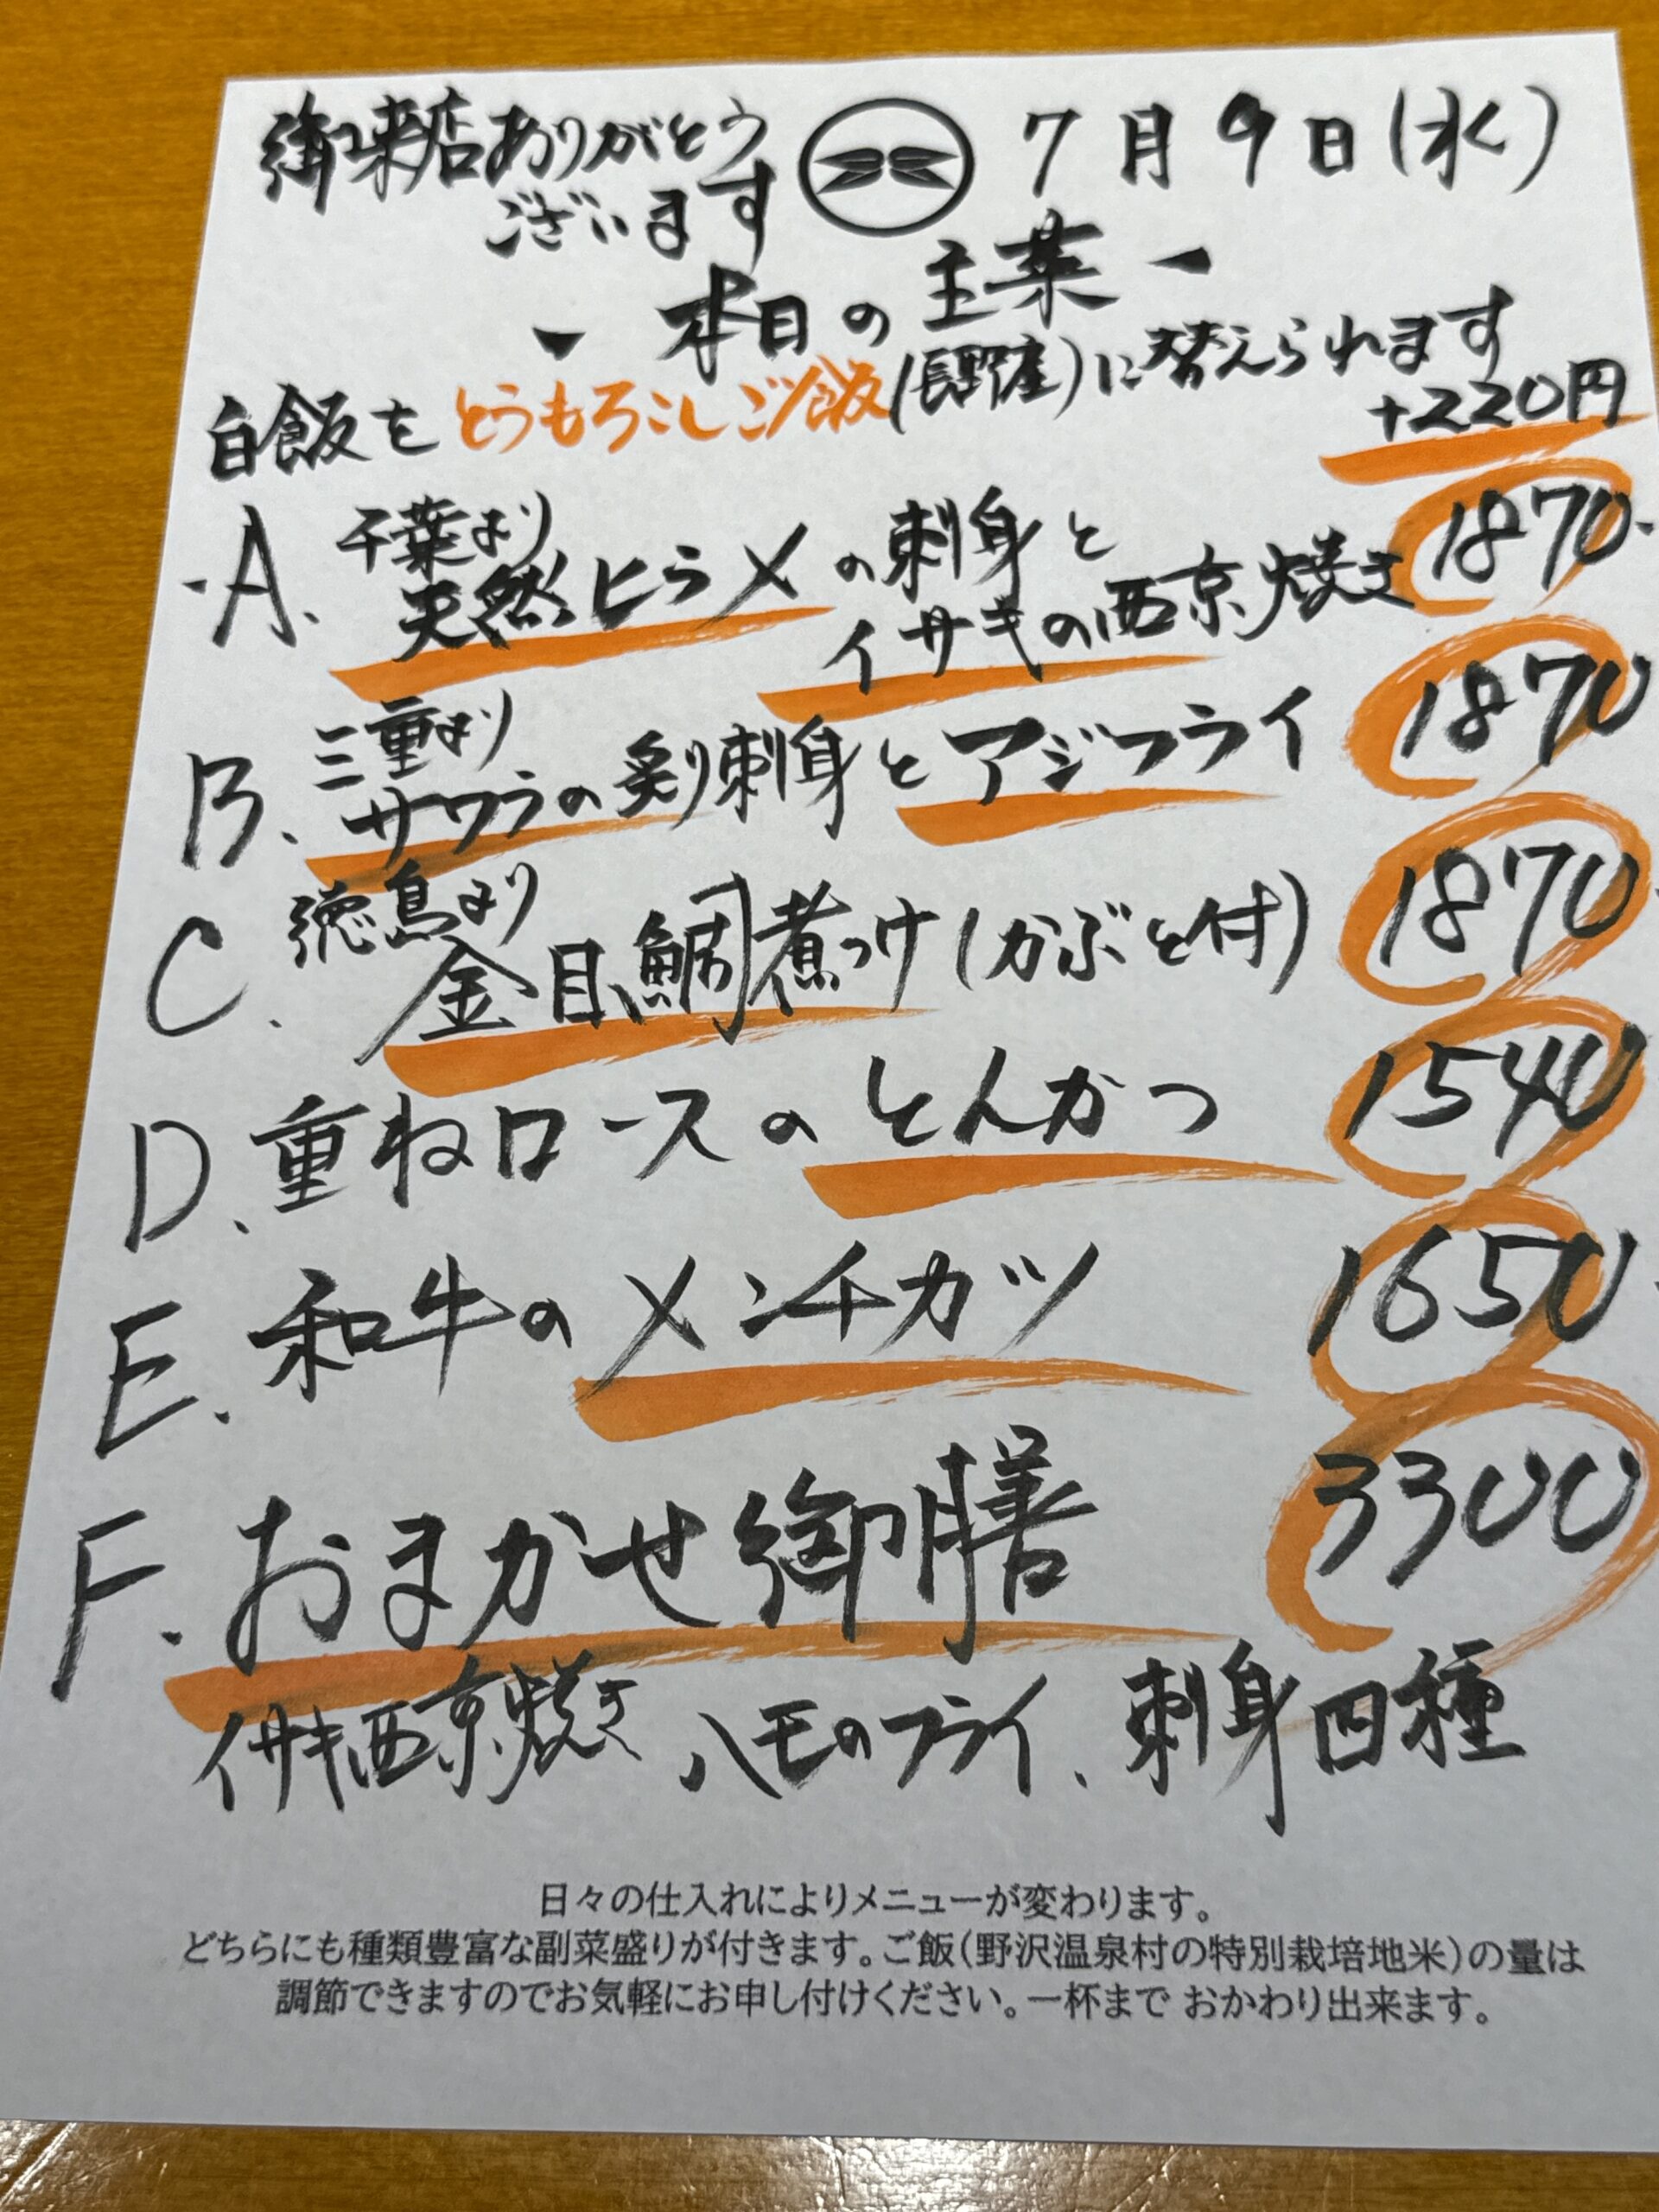 御来店ありがとう
ございます
7月9日(水)
- 本日の主菜 -
白飯をとうもろこしご飯(長野産)に替えられます
+220円
A. 千葉より
天然ヒラメの刺身と
イサキの西京焼き 1870-
B. 三重より
サワラの炙り刺身とアジフライ 1870
C. 徳島より
金目鯛煮つけ(かぶと付) 1870-
D. 重ねロースのとんかつ 1540
E. 和牛のメンチカツ 1650-
F. おまかせ御膳 3300
イサキ西京焼き、ハモのフライ、刺身四種
日々の仕入れによりメニューが変わります。
どちらにも種類豊富な副菜盛りが付きます。ご飯(野沢温泉村の特別栽培地米)の量は
調節できますのでお気軽にお申し付けください。一杯まで おかわり出来ます。